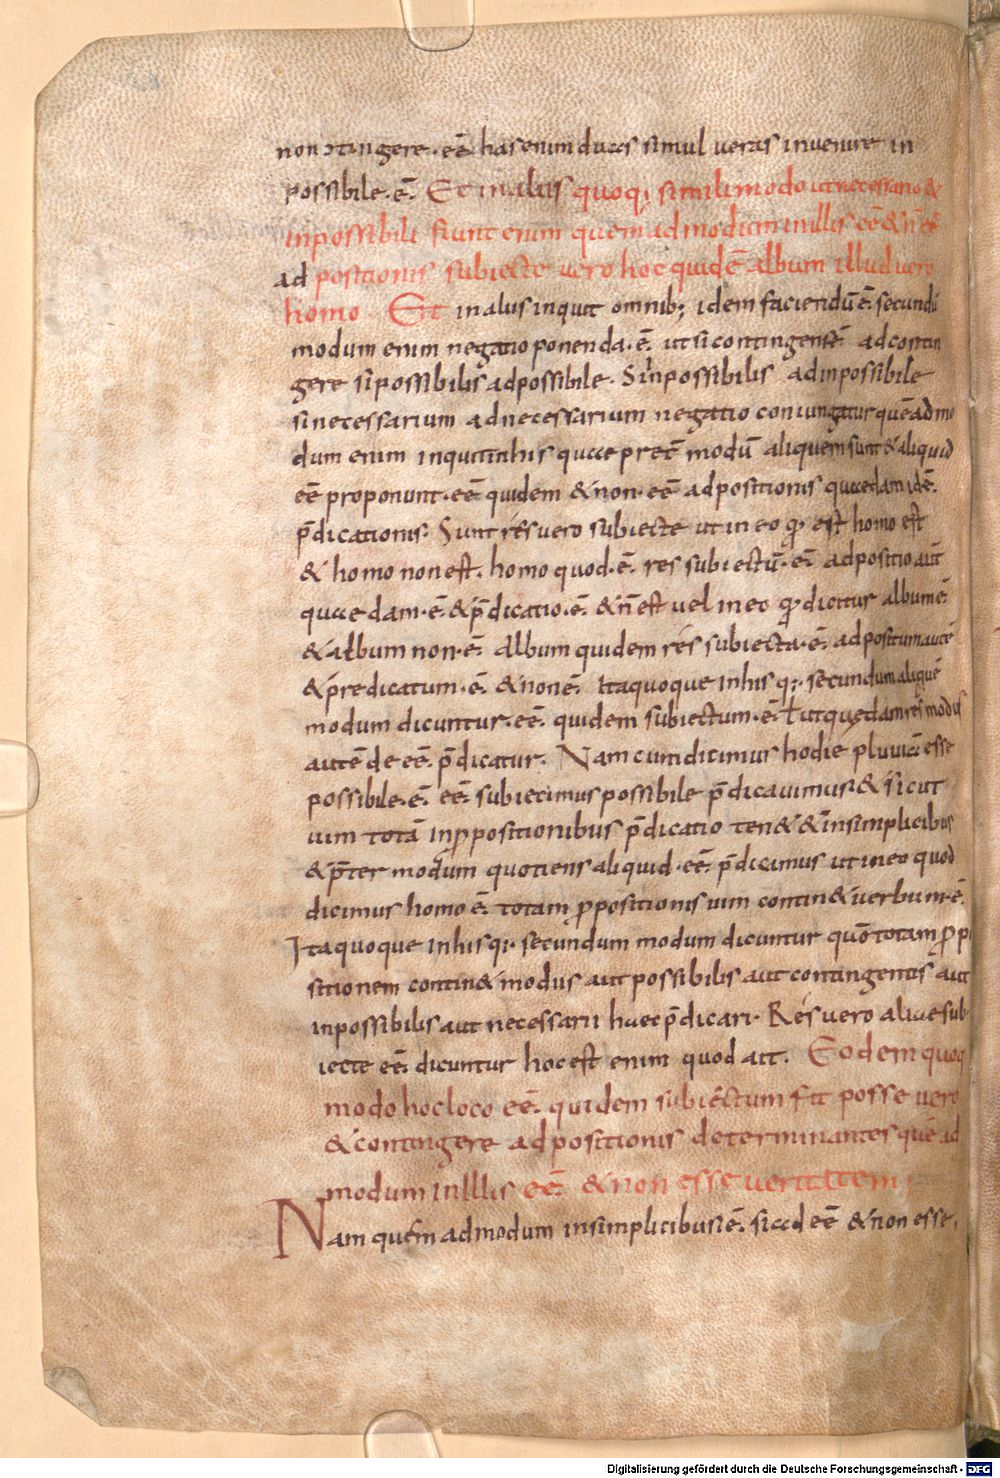 non ɔtingere · eē· has enim duas simul veras invenire in
possibile · ē· Et in aliis quoq; simili modo ut necessario &
inpossibili fiunt enim quem ad modum in illis eē & n̄ eē
ad positionis subiecte vero hoc quidē album illud vero
homo · Et in aliis inquit omnib; idem faciendū ē· secundū
modum enim negatio ponenda · ē· ut si contingens ē ad contin
gere si possibilis ad possibile · Si inpossibilis ad inpossibile
si necessarium ad necessarium negatio coniungatur quē ad mo
dum enim inquit in his quae pret̄ modū aliquem sunt & aliquid
eē proponunt · eē quidem & non · eē adpositionis quaedam idē·
p̄dicationis · Sunt res vero subiecte ut in eo q; est homo est
& homo non est · homo quod · ē· res subiectū · ē· adpositio aūt
quaedam · ē· & p̄dicatio · ē· & n̄ est vel in eo q; dicitur album ē·
& album non · ē· Album quidem res subiecta · ē· adpositum autē
& predicatum · ē· & non ē· Ita quoque in his q; · secundum aliquē
modum dicuntur · eē· quidem subiectum · ē· ł ut quędam res modus
autē de eē· p̄dicatur · Nam cum dicimus hodie pluviā esse
possibile · ē· eē· subiecimus possibile p̄dicavimus & sicut
vim totā in p̄positionibus p̄dicatio ten& & in simplicibus
& p̄ter modum quotiens aliquid · eē· p̄dicimus ut in eo quod
dicimus homo ē· totam p̄positionis vim contin& verbum · ē·
Ita quoque in his q; · secundum modum dicuntur quō totam p̄po
sitionem contin& modus aut possibilis aut contingentis aut
inpossibilis aut necessarii haec p̄dicari · Res vero aliae sub
iecte eē· dicuntur hoc est enim quod ait · Eodem quoq
modo hoc loco eē· quidem subiectum fit posse vero
& contingere adpositionis determinantes quē ad
modum in illis eē· & non esse veritatem
Nam quēm admodum in simplicibus ē· sic ad eē & non esse ·
Digitalisierung gefördert durch die Deutsche Forschungsgemeinschaft - DFG